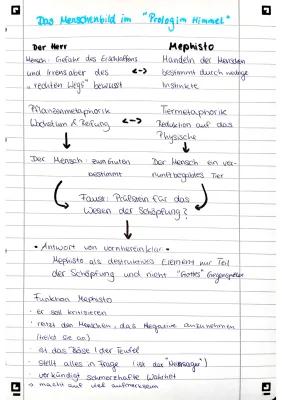 Das Menschenbild im "Prolog im Himmel"
Der Herr
Mephisto
Mensch: Gefahr des Erschlaffens
und Irrens aber des
"rechten Wegs" bewusst
<->
Handeln der Menschen
bestimmt durch niedrige
Instinkte
Pflanzenmetaphorik
Wachstum & Reifung
<->
Tiermetaphorik
Reduktion auf das
Physische
Der Mensch: zum Guten
bestimmt
Der Mensch ein ver-
nunftbegabtes Tier
Faust: Prüfstein für das
Wesen der Schöpfung?
• Antwort von vornherein klar •
Mephisto als destruktives Element nur Teil
der Schöpfung und nicht "Gottes" Gegenspieler
Funktion Mephisto
• er soll kritisieren
• reizt den Menschen, das Negative anzunehmen
(treibt sie an)
• ist das Böse / der Teufel
• stellt alles in Frage (ist der "Neinsager")
• verkündigt schmerzhafte Wahrheit
→ macht auf viel aufmerksam